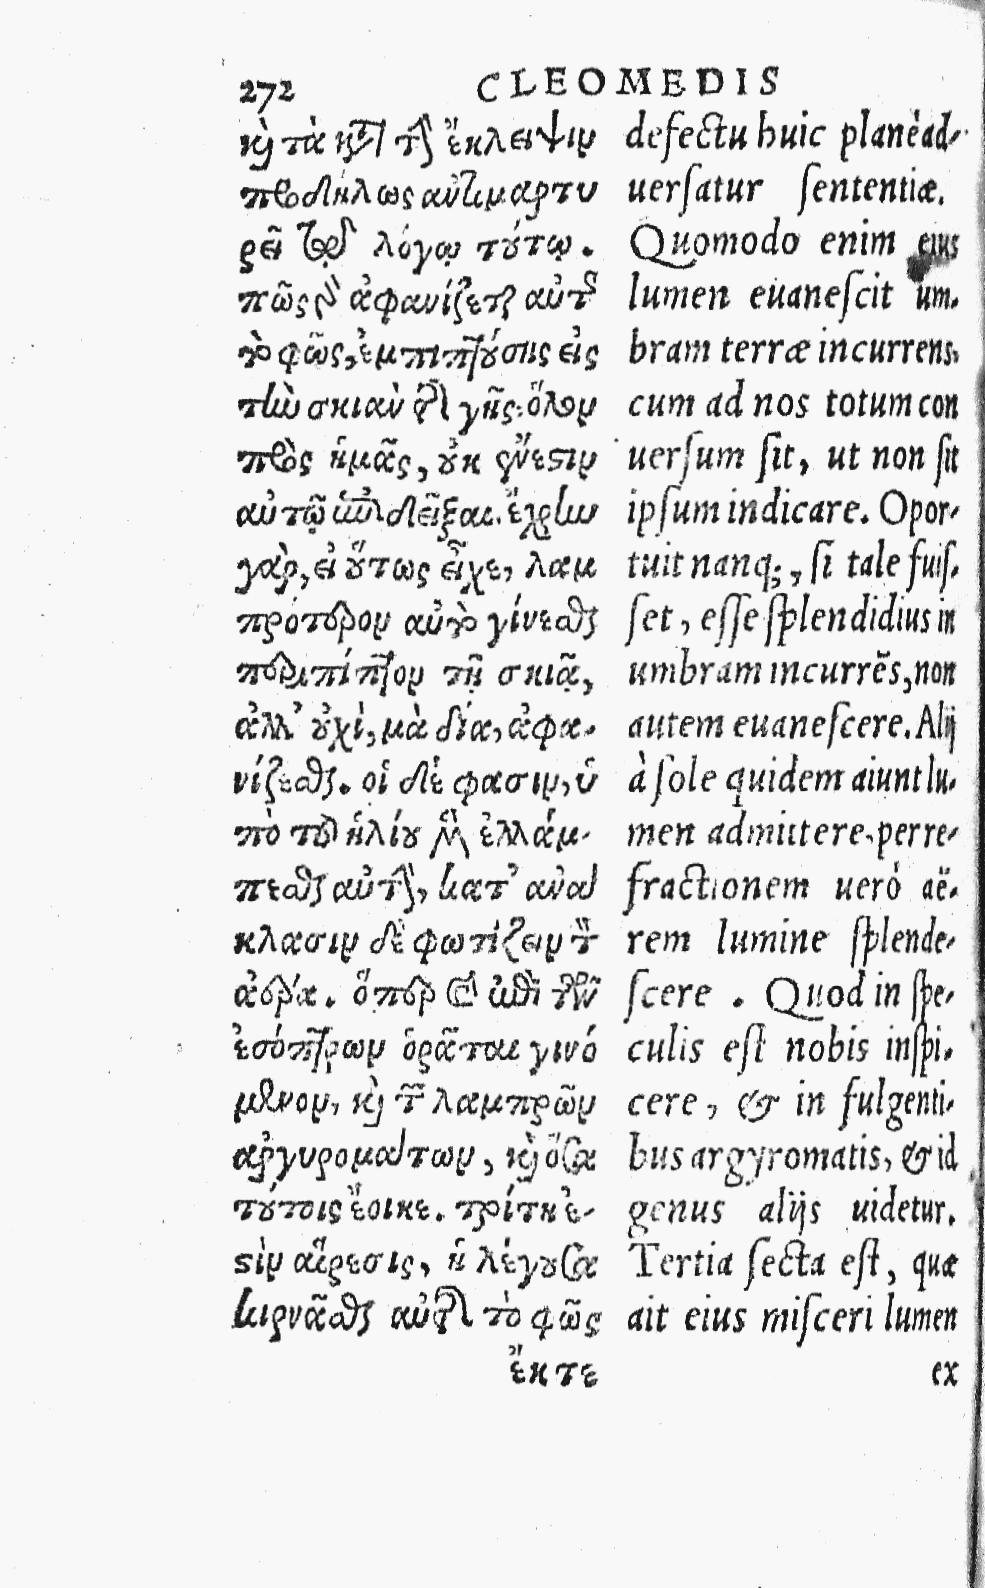 272 CLEOMEDIS
καὶ τὰ κατὰ τὴν ἔκλειψιν
προδήλως ἀντιμαρτυ
ρεῖ τῷ λόγῳ τούτῳ.
πῶς γὰρ ἀφανίζεται αὐτῆς
τὸ φῶς, ἐμπιπτούσης εἰς
τὴν σκιὰν τῆς γῆς· ὅλον
πρὸς ἡμᾶς, οὐκ ἔνεστιν
αὐτῷ ὑποδεῖξαι. ἔχρην
γὰρ, εἰ οὕτως εἶχε, λαμ
πρότερον αὐτὸ γίνεσθαι
περιπίπτον τῇ σκιᾷ,
ἀλλ' οὐχὶ, μὰ δία, ἀφα-
νίζεσθαι. οἱ δέ φασιν, ὑ
πὸ τοῦ ἡλίου μὲν ἐλλάμ-
πεσθαι αὐτὴν, κατ' ἀνά
κλασιν δὲ φωτίζειν τὸν
ἀέρα. ὅπερ καὶ ἐπὶ τῶν
ἐσόπτρων ὁρᾶται γινό
μενον, καὶ τῶν λαμπρῶν
ἀργυρομάτων, καὶ ὅσα
τούτοις ἔοικε. τρίτη ἐ-
στὶν αἵρεσις, ἡ λέγουσα
κιρνᾶσθαι αὐτῆς τὸ φῶς
ἔκ τε
defectu huic planè ad-
uersatur sententiæ.
Quomodo enim eius
lumen euanescit um-
bram terræ incurrens,
cum ad nos totum con
uersum sit, ut non sit
ipsum indicare. Opor-
tuit nanq;, si tale fuis-
set, esse splendidius in
umbram incurrẽs, non
autem euanescere. Alij
à sole quidem aiunt lu-
men admittere, per re-
fractionem uerò aë-
rem lumine splende-
scere. Quod in spe-
culis est nobis inspi-
cere, & in fulgenti-
bus argyromatis, & id
genus alijs uidetur.
Tertia secta est, quæ
ait eius misceri lumen
ex